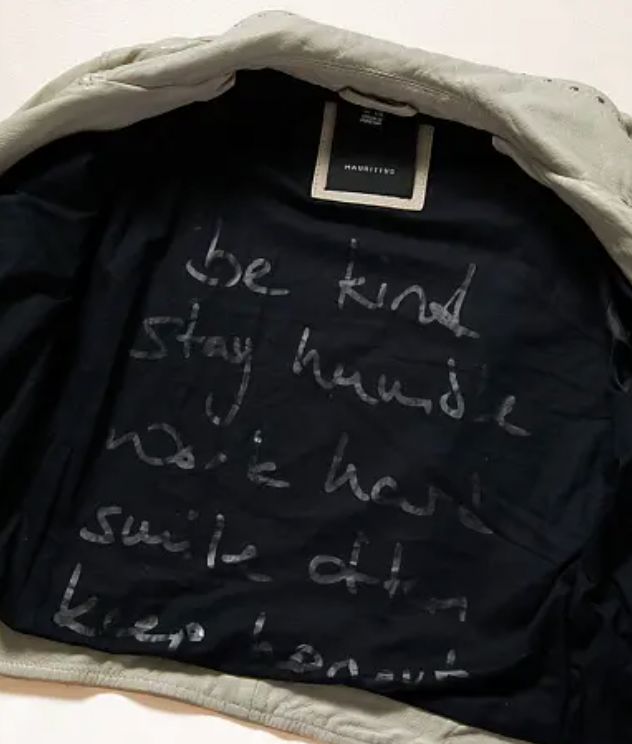 MAURITIUS
be kind
stay humble
work hard
smile often
keep honest